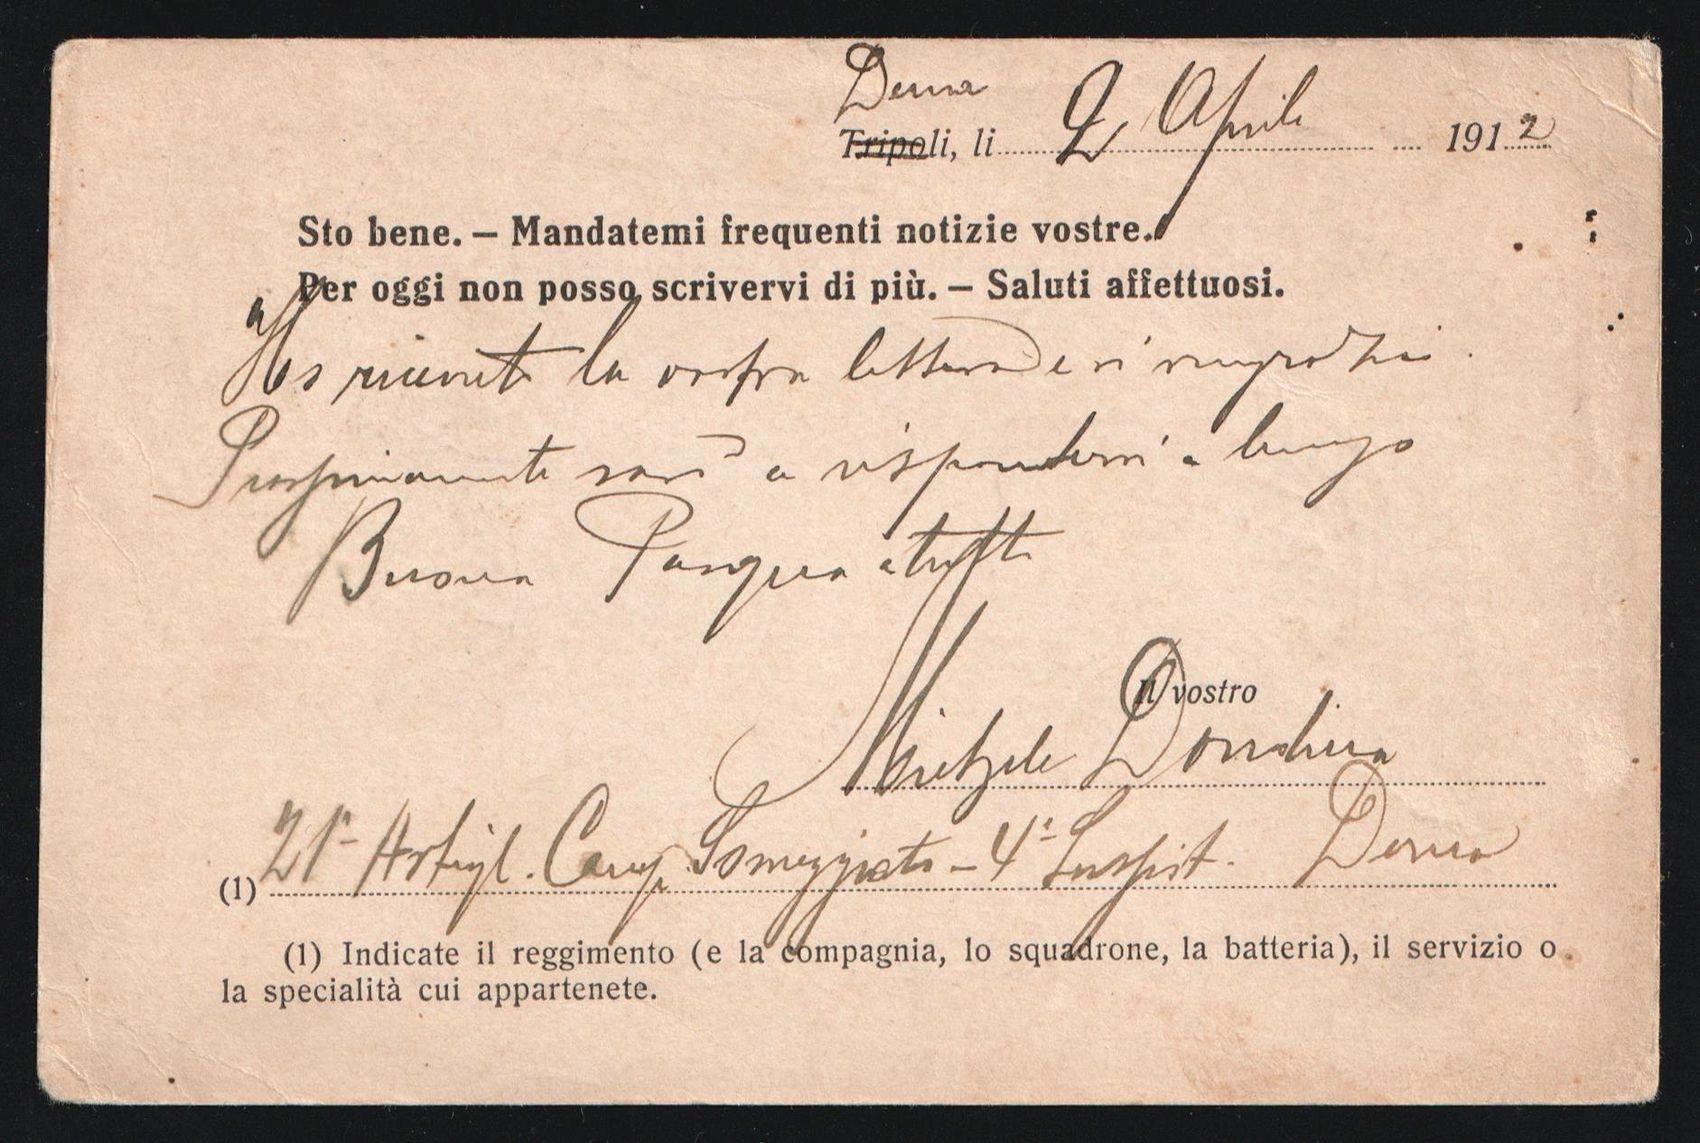 Derna
Tripoli, li 2 Aprile 1912
Sto bene. — Mandatemi frequenti notizie vostre.
Per oggi non posso scrivervi di più. — Saluti affettuosi.
Ho ricevuto la vostra lettera e vi ringrazio.
Prossimamente sarò a rispondervi a lungo
Buona Pasqua a tutti
Il vostro
21° Artigl. Camp. Someggiata - 4ª Derna
(1)
(1) Indicate il reggimento (e la compagnia, lo squadrone, la batteria), il servizio o
la specialità cui appartenete.